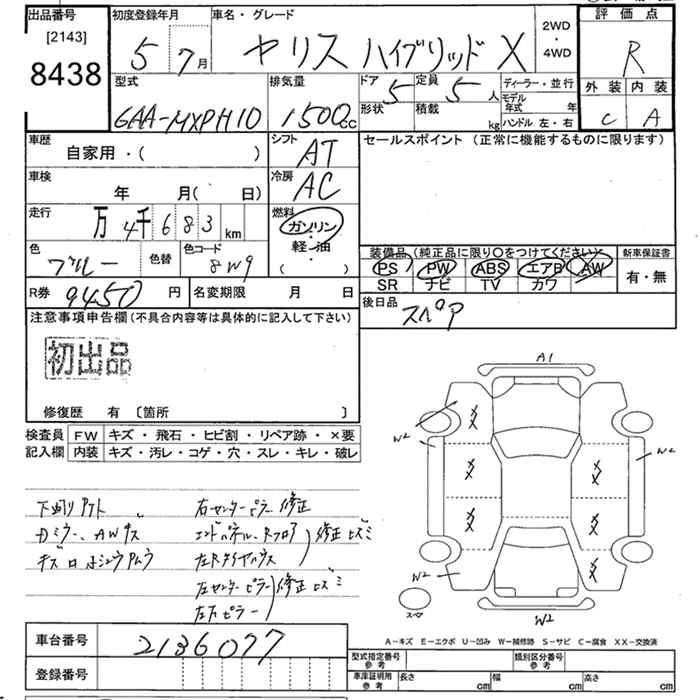 出品番号
[2143]
8438
初度登録年月
5 年 7月
車名・グレード
ヤリス ハイブリッド X
2WD
・
4WD
評価点
R
外装 内装
C A
型式
6AA-MXPH10
排気量
1500cc
ドア 5
形状
定員 5人
積載 kg
ディーラー・並行
モデル年式 年
ハンドル 左・右
車歴
自家用・( )
シフト
AT
セールスポイント (正常に機能するものに限ります)
車検
年 月( 日)
冷房
AC
走行
万 4千 6 8 3 km
燃料
ガソリン
・
軽・油
( )
色
ブルー
色替
色コード
8W9
装備品 (純正品に限り○をつけてください)
PS PW ABS エアB AW
SR ナビ TV カワ
新車保証書
有・無
R券 9450 円
名変期限 月 日
後日品
スペア
注意事項申告欄 (不具合内容等は具体的に記入して下さい)
初出品
修復歴 有 〔箇所 〕
検査員
記入欄
FW キズ・飛石・ヒビ割・リペア跡・×要
内装 キズ・汚レ・コゲ・穴・スレ・キレ・破レ
A1
W2
W2
W2
W2
XX
XX
XX
XX
XX
XX
スペア
右センターピラー修正
エンドパネル、Rフロア
左Rタイヤハウス
修正 ヒズミ
左センターピラー
修正 ヒズミ
A-キズ E-エクボ U-凹み W-補修跡 S-サビ C-腐食 XX-交換済
車台番号
2136077
登録番号
型式指定番号
参考
類別区分番号
参考
車庫証明用
参考
長さ cm
幅 cm
高さ cm